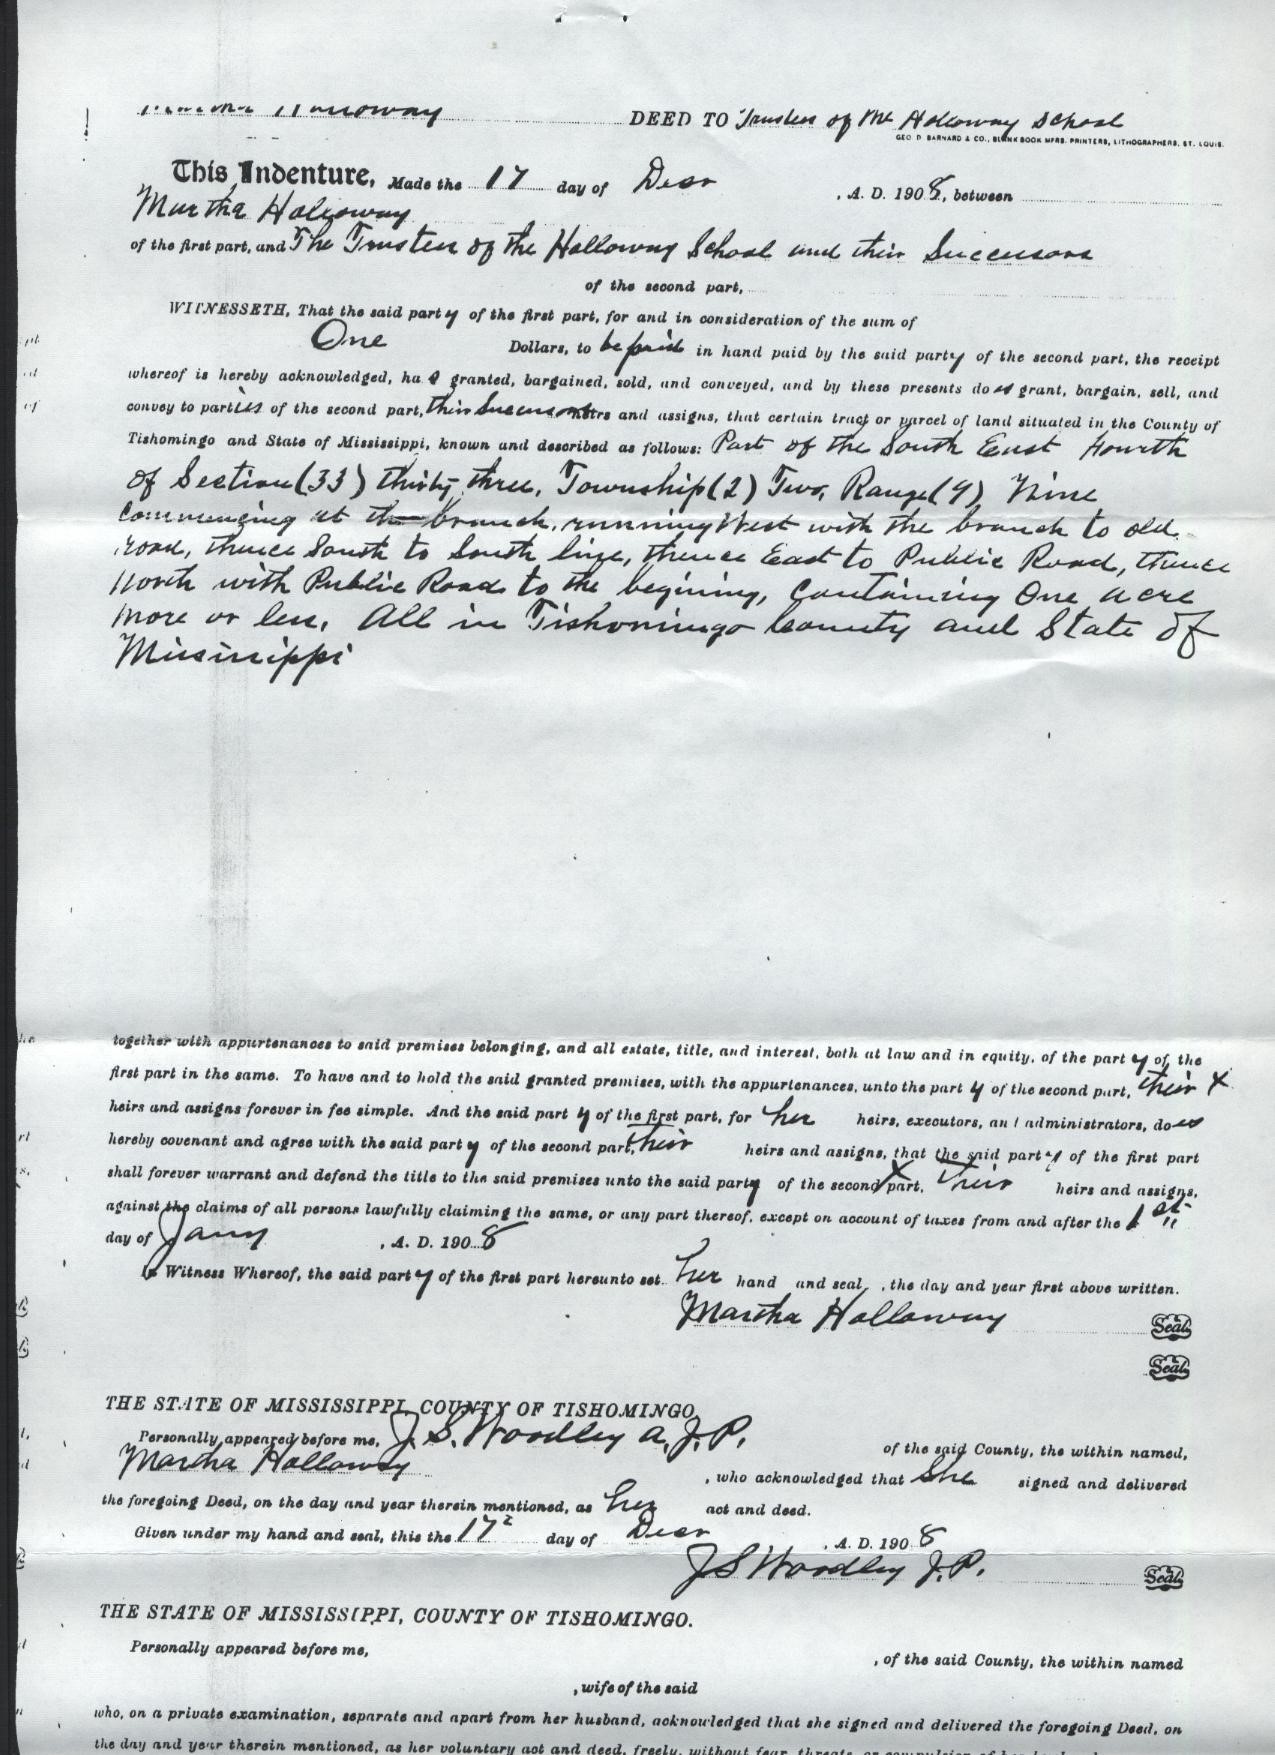 Holloway DEED TO Trustees of the Holloway School
GEO D BARNARD & CO., BLANK BOOK MFRS. PRINTERS, LITHOGRAPHERS, ST. LOUIS.
This Indenture, Made the 17 day of Decr , A. D. 1908, between
Martha Holloway
of the first part, and The Trustees of the Holloway School and their Successors
of the second part,
WITNESSETH, That the said party of the first part, for and in consideration of the sum of
One Dollars, to be paid in hand paid by the said party of the second part, the receipt
whereof is hereby acknowledged, has granted, bargained, sold, and conveyed, and by these presents does grant, bargain, sell, and
convey to parties of the second part, their Successors heirs and assigns, that certain tract or parcel of land situated in the County of
Tishomingo and State of Mississippi, known and described as follows: Part of the South East Fourth
of Section (33) thirty three, Township (2) Two, Range (9) Nine
Commencing at the branch, running West with the branch to old
road, thence South to South line, thence East to Public Road, thence
North with Public Road to the begining, Containing One acre
more or less, All in Tishomingo County and State of
Misissippi
together with appurtenances to said premises belonging, and all estate, title, and interest, both at law and in equity, of the part y of the
first part in the same. To have and to hold the said granted premises, with the appurtenances, unto the part y of the second part, their X
heirs and assigns forever in fee simple. And the said part y of the first part, for her heirs, executors, and administrators, does
hereby covenant and agree with the said party of the second part, their heirs and assigns, that the said party of the first part
shall forever warrant and defend the title to the said premises unto the said party of the second X part, Their heirs and assigns,
against the claims of all persons lawfully claiming the same, or any part thereof, except on account of taxes from and after the 1st
day of Jany , A. D. 1908
In Witness Whereof, the said party of the first part hereunto set her hand and seal, the day and year first above written.
Martha Holloway Seal
Seal
THE STATE OF MISSISSIPPI, COUNTY OF TISHOMINGO
Personally appeared before me, J. S. Woodley a, J. P. of the said County, the within named,
Martha Holloway , who acknowledged that She signed and delivered
the foregoing Deed, on the day and year therein mentioned, as her act and deed.
Given under my hand and seal, this the 17 day of Decr , A. D. 1908
J S Woodley J. P. Seal
THE STATE OF MISSISSIPPI, COUNTY OF TISHOMINGO.
Personally appeared before me, , of the said County, the within named
, wife of the said
who, on a private examination, separate and apart from her husband, acknowledged that she signed and delivered the foregoing Deed, on
the day and year therein mentioned, as her voluntary act and deed, freely, without fear, threats, or compulsion of her husband